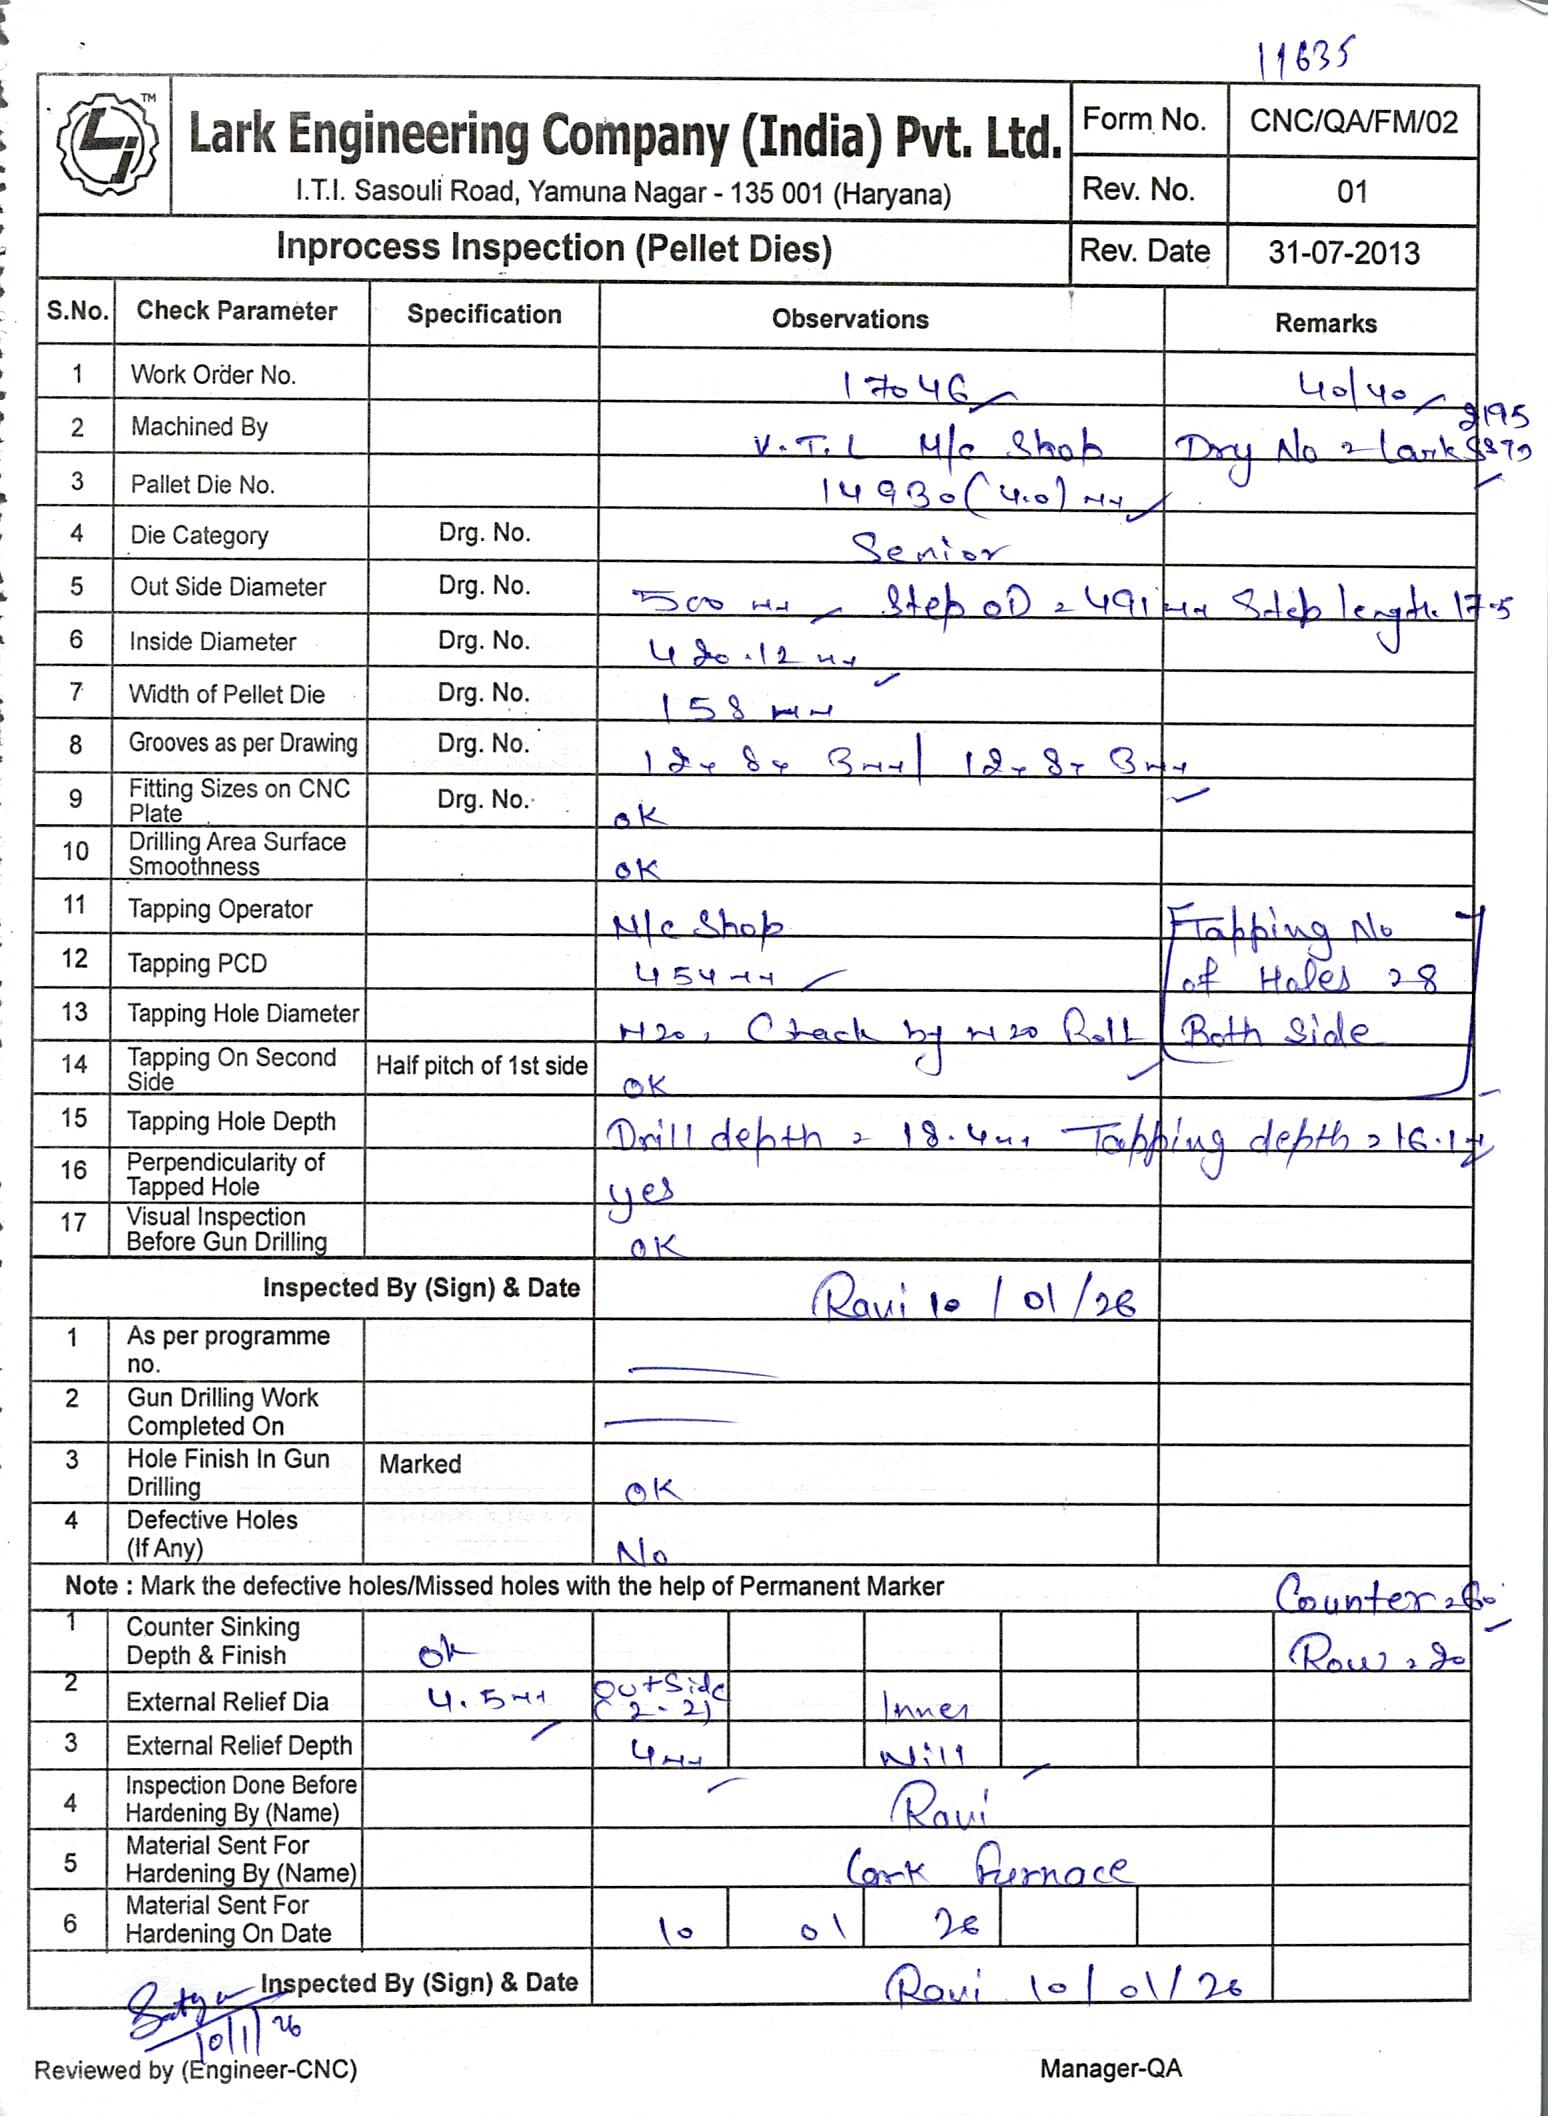 11635
TM
Lark Engineering Company (India) Pvt. Ltd.
I.T.I. Sasouli Road, Yamuna Nagar - 135 001 (Haryana)
Form No. CNC/QA/FM/02
Rev. No. 01
Inprocess Inspection (Pellet Dies) Rev. Date 31-07-2013
S.No. Check Parameter Specification Observations Remarks
1 Work Order No. 17046 40/40
2 Machined By V.T.L M/c Shop Drg No = Lark
3 Pallet Die No. 14930 (4.0) mm
4 Die Category Drg. No. Senior
5 Out Side Diameter Drg. No. 500 mm Step OD = 491 mm Step length 17.5
6 Inside Diameter Drg. No. 420.12 mm
7 Width of Pellet Die Drg. No. 158 mm
8 Grooves as per Drawing Drg. No. 12 x 8 x 3mm / 12 x 8 x 3mm
9 Fitting Sizes on CNC Plate Drg. No. OK
10 Drilling Area Surface Smoothness OK
11 Tapping Operator M/c Shop Tapping No
12 Tapping PCD 454 mm of Holes = 8
13 Tapping Hole Diameter M20, Check by M20 Bolt Both Side
14 Tapping On Second Side Half pitch of 1st side OK
15 Tapping Hole Depth Drill depth = 18.4mm Tapping depth = 16.1
16 Perpendicularity of Tapped Hole yes
17 Visual Inspection Before Gun Drilling OK
Inspected By (Sign) & Date Ravi 10/01/26
1 As per programme no.
2 Gun Drilling Work Completed On
3 Hole Finish In Gun Drilling Marked OK
4 Defective Holes (If Any) No
Note : Mark the defective holes/Missed holes with the help of Permanent Marker Counter = 60°
1 Counter Sinking Depth & Finish Ok Row = 20
2 External Relief Dia 4.5mm OutSide (2-2) Inner
3 External Relief Depth 4mm Nill
4 Inspection Done Before Hardening By (Name) Ravi
5 Material Sent For Hardening By (Name) Lark Furnace
6 Material Sent For Hardening On Date 10 01 26
Inspected By (Sign) & Date Ravi 10/01/26
10/1/26
Reviewed by (Engineer-CNC) Manager-QA